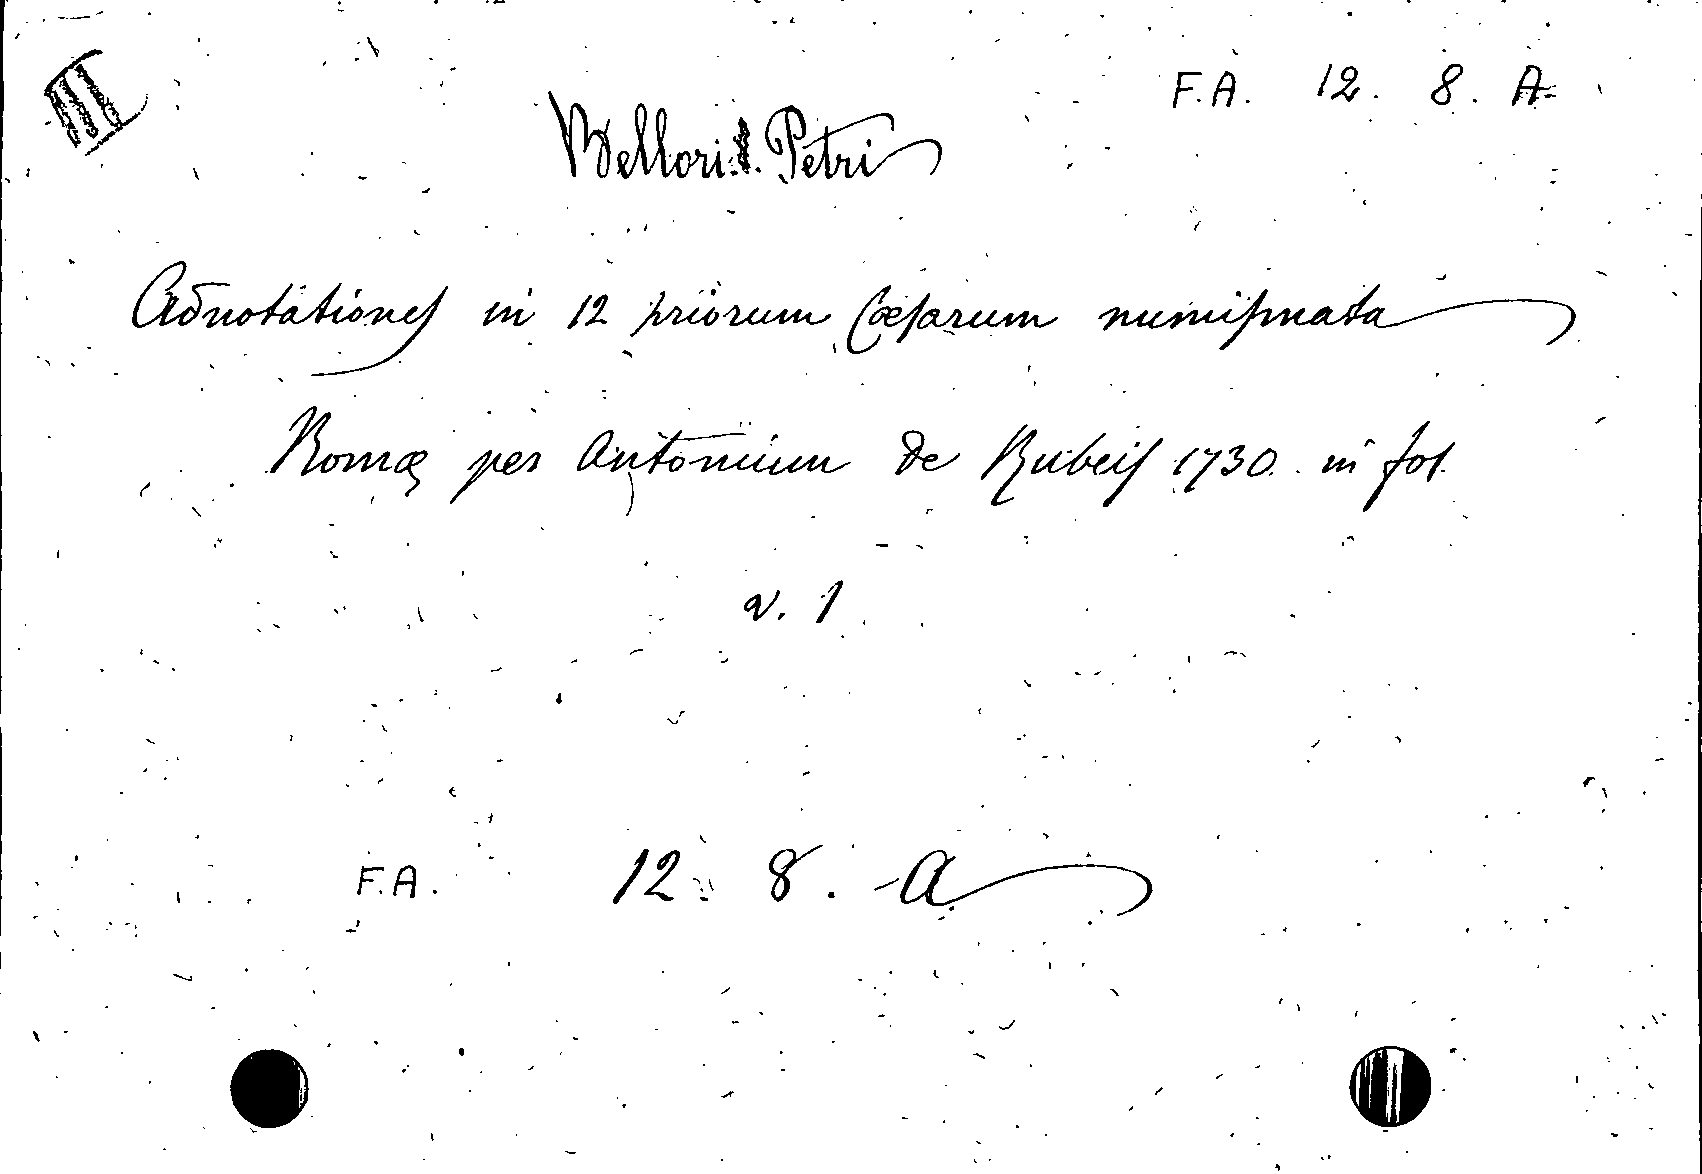 III
F.A. 12. 8. A.
Bellori. Petri
Adnotationes in 12 priorum Cæsarum numismata
Romæ per Antonium de Rubeis 1730. in fol.
v. 1
F.A. 12. 8. A